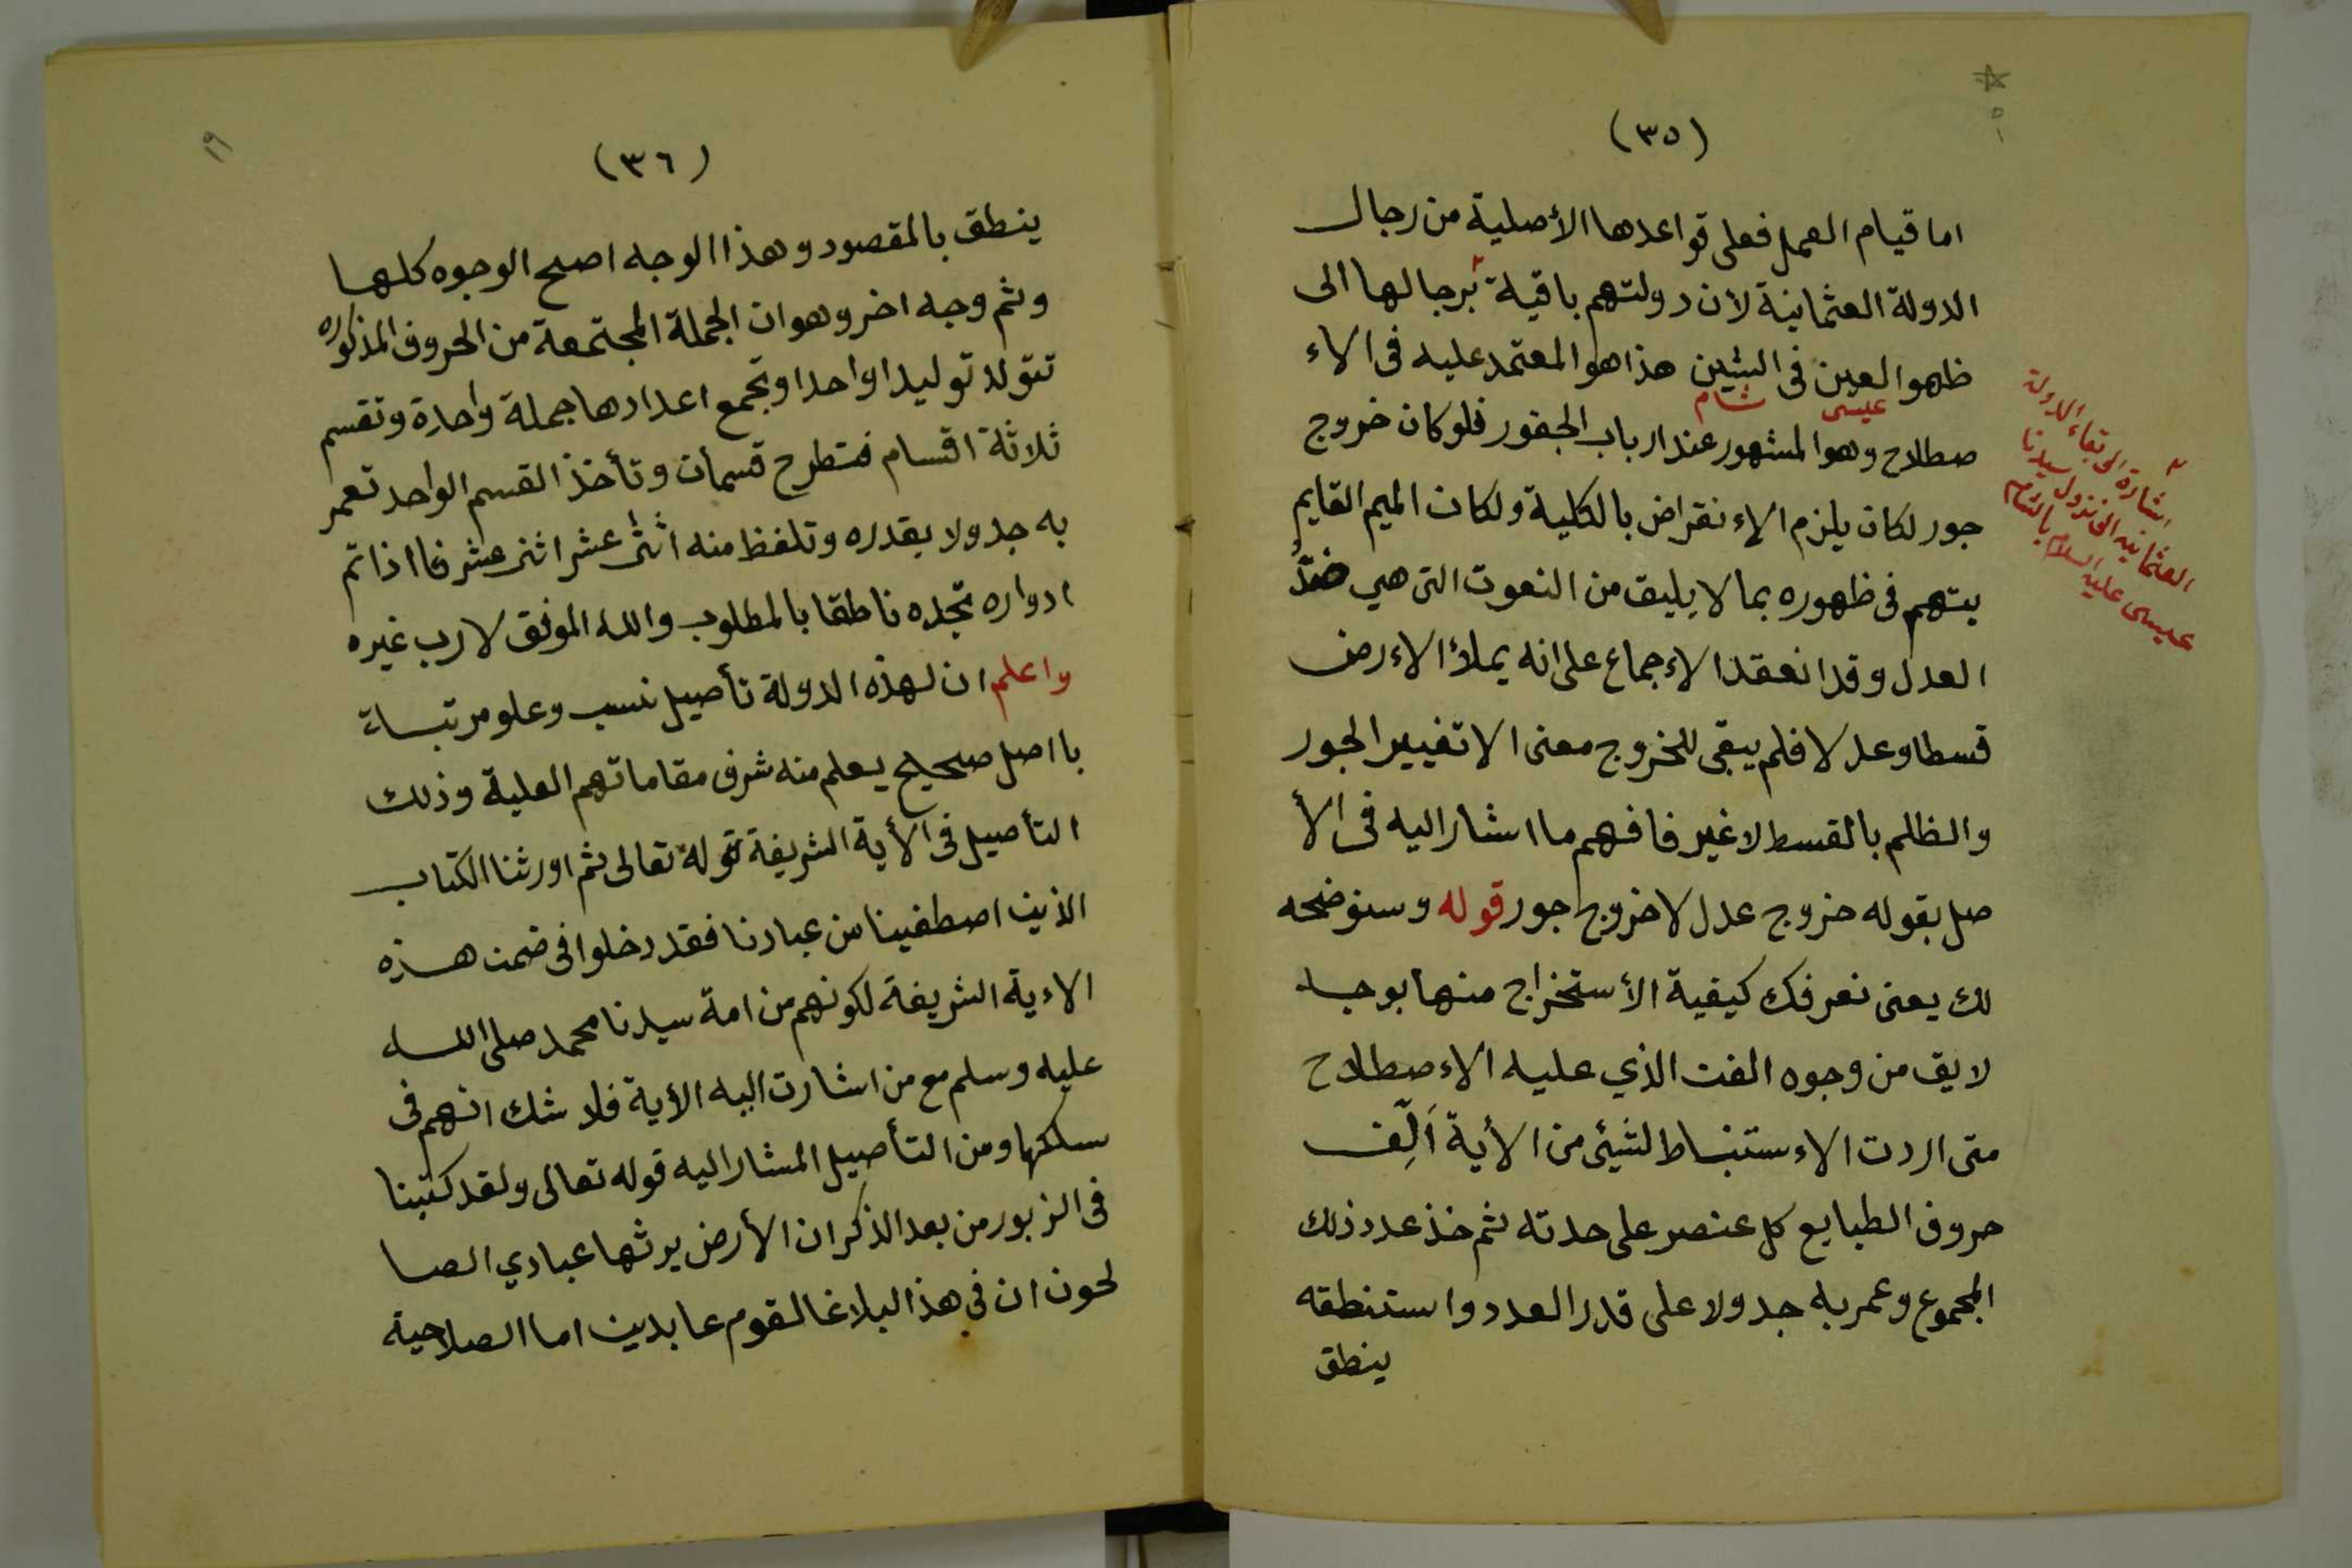 (٣٥)
اما قيام العمل فعلى قواعدها الأصلية من رجال
الدولة العثمانية لأن دولتهم باقية برجالها الى
ظهور العين فى الشين هذا هو المعتمد عليه فى الاء
عيسى شام
صطلاح وهو المشهور عند ارباب الجفور فلو كان خروج
جور لكان يلزم الإنقراض بالكلية ولكان الميم القايم
يتهم فى ظهوره بما لا يليق من النعوت التى هي ضدُّ
العدل وقد انعقد الإجماع على انه يملأ الاءرض
قسطا وعدلا فلم يبقى للخروج معنى الا تغيير الجور
والظلم بالقسط لا غير فافهم ما اشار اليه فى الأ
صل بقوله خروج عدل لا خروج جور قوله وسنوضحه
لك يعنى نعرفك كيفية الأستخراج منها بوجه
لايق من وجوه الفن الذي عليه الاءصطلاح
متى اردت الاءستنباط لشيئ من الأية اَلِّف
حروف الطبايع كل عنصر على حدته ثم خذ عدد ذلك
المجموع وعمر به جدولا على قدر العدد واستنطقه
ينطق
٢
اشارة الى بقاء الدولة
العثمانيه الى نزول سيدنا
عيسى عليه السلام بالشام
(٣٦)
١٩
ينطق بالمقصود وهذا الوجه اصح الوجوه كلها
وثم وجه اخر وهو ان الجملة المجتمعة من الحروف المذكوره
تتولد توليدا واحدا وتجمع اعدادها جملة واحدة وتقسم
ثلاثة اقسام فتطرح قسمان وتأخذ القسم الواحد تعمر
به جدولا بقدره وتلفظ منه اثنى عشر اثنى عشر فااذا تم
ادواره تجده ناطقا بالمطلوب والله الموفق لا رب غيره
واعلم ان لهذه الدولة تأصيل نسب وعلو مرتبة
بااصل صحيح يعلم منه شرف مقاماتهم العلية وذلك
التأصيل فى الأية الشريفة قوله تعالى ثم اورثنا الكتاب
الذين اصطفينا من عبادنا فقد دخلوا فى ضمن هذه
الاءية الشريفة لكونهم من امة سيدنا محمد صلى الله
عليه وسلم مع من اشارت اليه الأية فلا شك انهم فى
سلكها ومن التأصيل المشار اليه قوله تعالى ولقد كتبنا
فى الزبور من بعد الذكر ان الأرض يرثها عبادي الصا
لحون ان فى هذا البلاغا لقوم عابدين اما الصلاحية